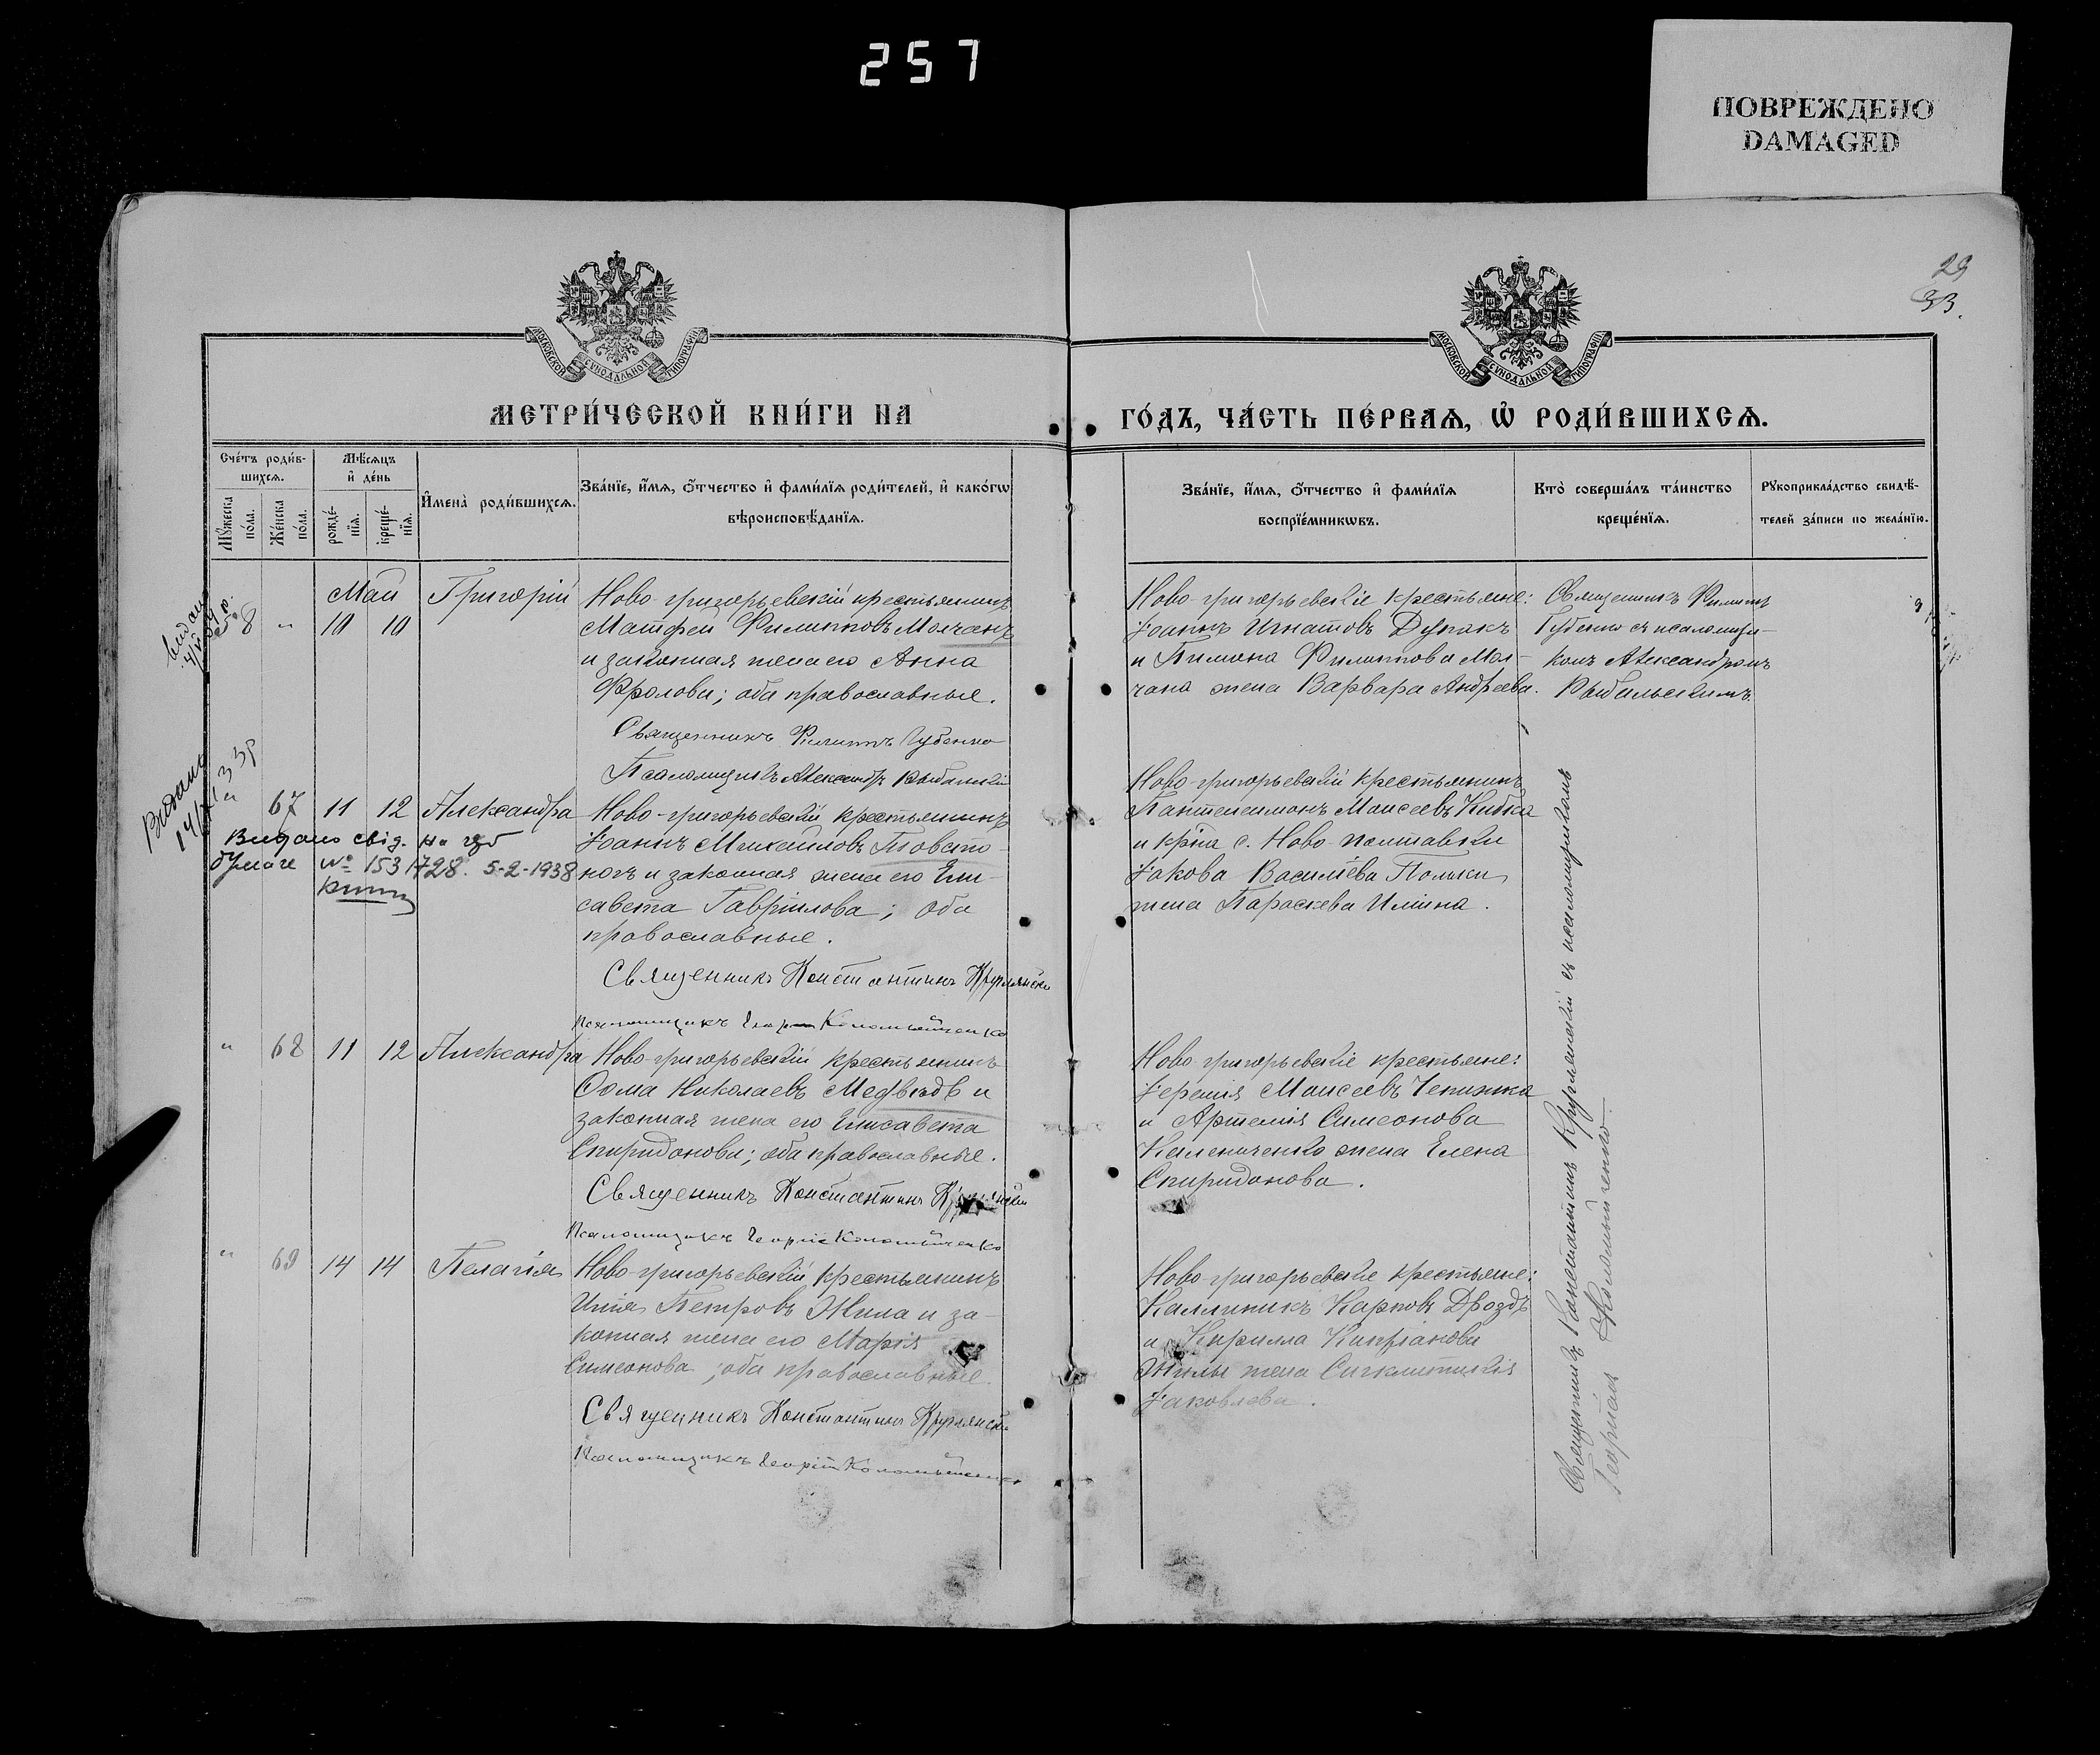 257
ПОВРЕЖДЕНО
DAMAGED
29
33.
МОСКОВСКОЙ СѴНОДАЛЬНОЙ ТИПОГРАФІИ
МОСКОВСКОЙ СѴНОДАЛЬНОЙ ТИПОГРАФІИ
МЕТРИ́ЧЕСКОЙ КНИ́ГИ НА
ГО́ДЪ, ЧА́СТЬ ПЕ́РВАѦ, Ѡ҆ РОДИ́ВШИХСѦ.
Сче́тъ роди́в-
шихсѧ.
Мꙋ́жеска по́ла.
Же́нска по́ла.
Мѣ́сѧцъ
и҆ де́нь
рожде́-
нїѧ.
креще́-
нїѧ.
И҆мена̀ роди́вшихсѧ.
Зва́нїе, и҆́мѧ, ѻ҆́тчество и҆ фами́лїѧ роди́телей, и҆ како́гѡ
вѣроисповѣ́данїѧ.
Зва́нїе, и҆́мѧ, ѻ҆́тчество и҆ фами́лїѧ
воспрїе́мникѡвъ.
Кто̀ соверша́лъ та́инство
креще́нїѧ.
Рꙋкоприкла́дство свидѣ́-
телей за́писи по жела́нїю.
8 " Май 10 10 Григорій
Ново-григорьевскій крестьянинъ
Матфей Филипповъ Молчанъ
и законная жена его Анна
Фролова; оба православные.
Священникъ Филиппъ Губенко
Псаломщикъ Александръ Рыбальскій
Ново-григорьевскіе крестьяне:
Іоаннъ Игнатовъ Дупакъ
и Пимона Филиппова Мол-
чана жена Варвара Андреева.
Священникъ Филиппъ
Губенко съ псаломщи-
комъ Александромъ
Рыбальскимъ.
Видано
" 67 11 12 Александра
Видано свід. на герб
бумаге № 1531728. 5-2-1938
Ново-григорьевскій крестьянинъ
Іоаннъ Михайловъ Товсто-
ногъ и законная жена его Ели-
савета Гавріилова; оба
православные.
Священникъ Константинъ Круглянскій
Псаломщикъ Георгій Коломійченко
Ново-григорьевскій крестьянинъ
Пантелеимонъ Моисеевъ Кибка
и кр-на с. Ново-полтавки
Іакова Василіева
жена Параскева Ильина.
" 68 11 12 Александра
Ново-григорьевскій крестьянинъ
Ѳома Николаевъ Медвѣдь и
законная жена его Елисавета
Спиридонова; оба православные.
Священникъ Константинъ Круглянскій
Псаломщикъ Георгій Коломійченко
Ново-григорьевскіе крестьяне:
Іеремія Моисеевъ Чепижка
и Артемія Симеонова
Калениченко жена Елена
Спиридонова.
" 69 14 14 Пелагія
Ново-григорьевскій крестьянинъ
Илія Петровъ Жила и за-
конная жена его Марія
Симеонова; оба православные.
Священникъ Константинъ Круглянскій
Псаломщикъ Георгій Коломійченко
Ново-григорьевскіе крестьяне:
Каллиникъ Карповъ Дроздъ
и Кирилла Кипріанова
Жилы жена Сигклитикія
Іаковлева.
Священникъ Константинъ Круглянскій съ псаломщикомъ
Георгіемъ Коломійченко